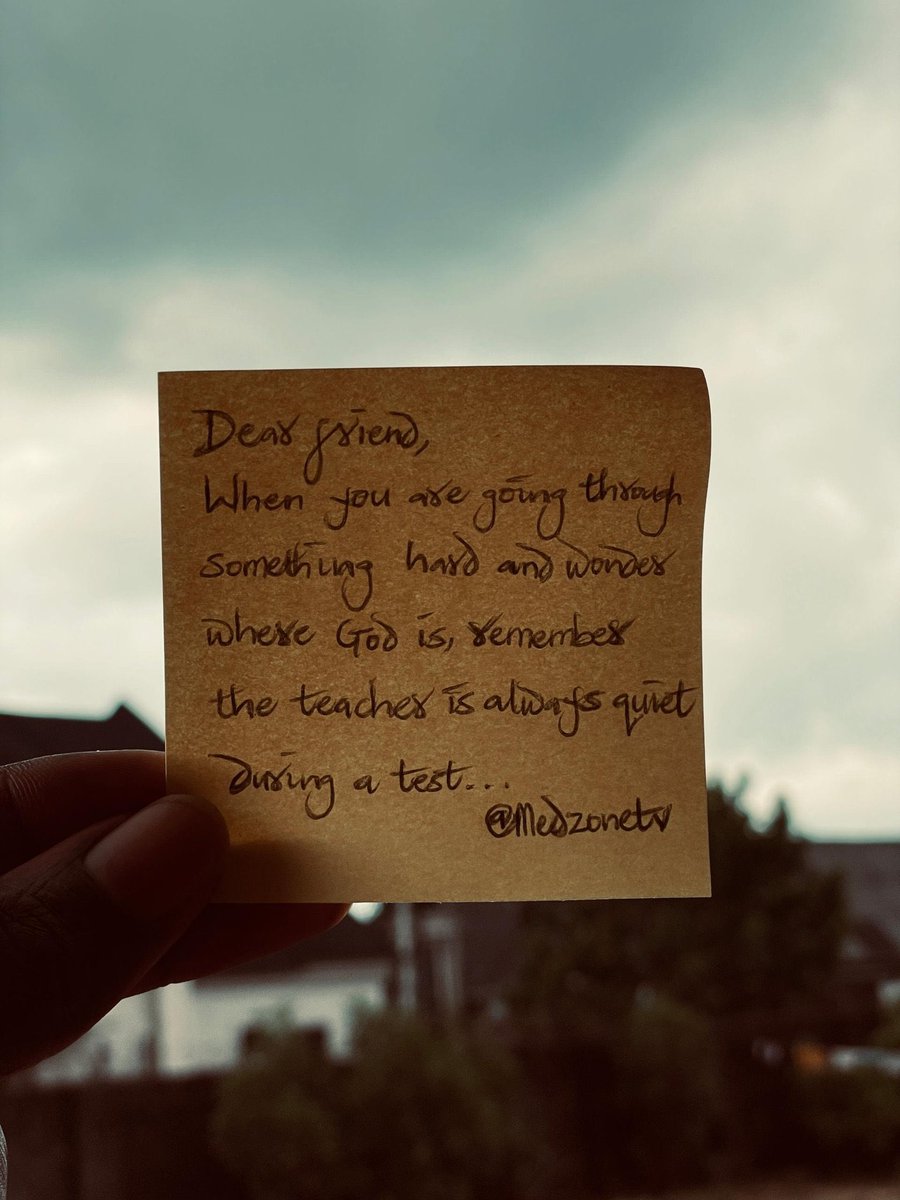 Dear friend,
When you are going through
something hard and wonder
where God is, remember
the teacher is always quiet
during a test...
@Medzonetv